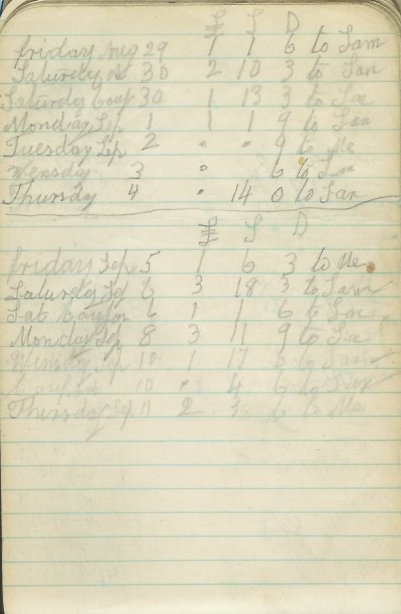 £ S D
Friday Aug 29 1 1 6 to Sam
Saturday 30 2 10 3 to Sam
Saturday Coup 30 1 13 3 to
Monday Sep 1 1 1 9 to Sam
Tuesday Sep 2 . . 9 to Me
Wensday 3 . 6 to Sam
Thursday 4 . 14 0 to Sam
£ S D
Friday Sep 5 1 6 3 to Me
Saturday Sep 6 3 18 3 to Sam
Sat Coupon 6 1 1 6 to
Monday Sep 8 3 11 9 to
Wensday Sep 10 1 17 6 to Sam
Coupon 10 4 6 to
Thursday Sep 11 2 6 to Me